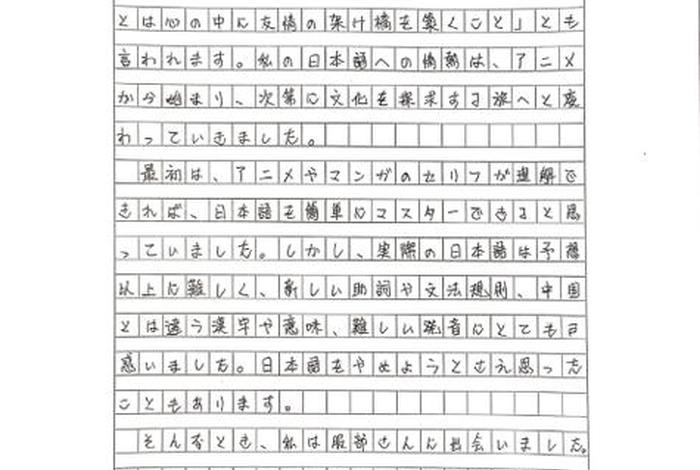 とは心の中に友情の架け橋を築くこと」とも
言われます。私の日本語への情熱は、アニメ
から始まり、次第に文化を探求する旅へと変
わっていきました。
最初は、アニメやマンガのセリフが理解で
きれば、日本語を簡単にマスターできると思
っていました。しかし、実際の日本語は予想
以上に難しく、新しい助詞や文法規則、中国
とは違う漢字や意味、難しい発音にとても戸
惑いました。日本語をやめようとさえ思った
こともあります。
そんなとき、私は服部さんに出会いました。